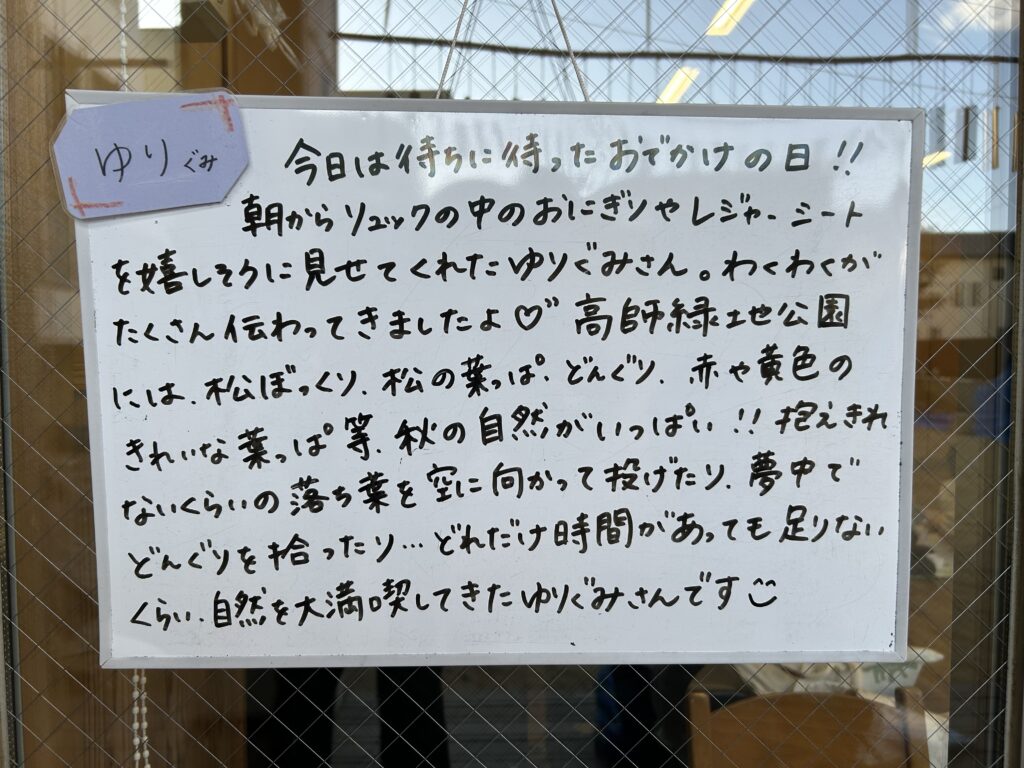 ゆりぐみ
今日は待ちに待ったおでかけの日!!
朝からリュックの中のおにぎりやレジャーシート
を嬉しそうに見せてくれたゆりぐみさん。わくわくが
たくさん伝わってきましたよ♡゛高師緑地公園
には、松ぼっくり、松の葉っぱ、どんぐり、赤や黄色の
きれいな葉っぱ等、秋の自然がいっぱい!!抱えきれ
ないくらいの落ち葉を空に向かって投げたり、夢中で
どんぐりを拾ったり…どれだけ時間があっても足りない
くらい、自然を大満喫してきたゆりぐみさんです